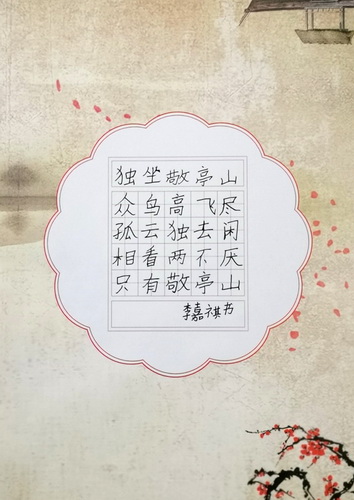 独坐敬亭山
众鸟高飞尽
孤云独去闲
相看两不厌
只有敬亭山
李嘉祺书